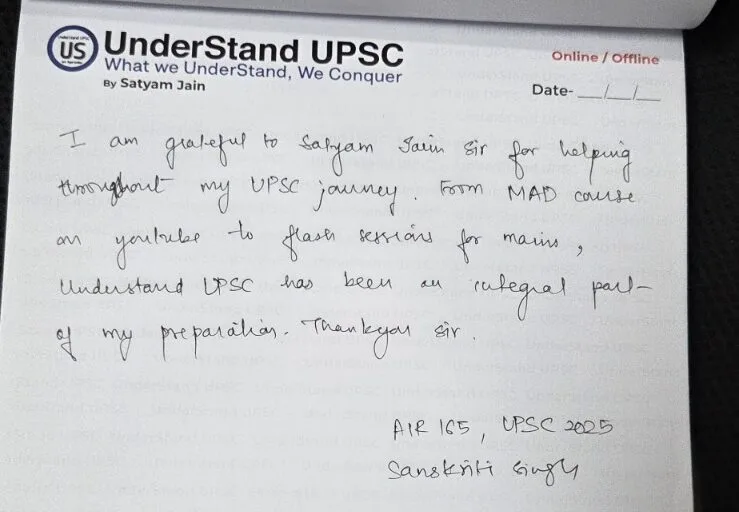 UnderStand UPSC
US
What we UnderStand, We Conquer
By Satyam Jain
Online / Offline
Date- __/__/__
I am grateful to Satyam Jain Sir for helping
throughout my UPSC journey. From MAD course
on youtube to flash sessions for mains,
Understand UPSC has been an integral part
of my preparation. Thankyou sir.
AIR 165, UPSC 2025
Sanskriti Singh